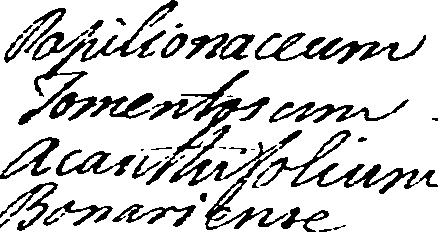 Papilionaceum
Tomentosum
Acanthifolium
Bonariense